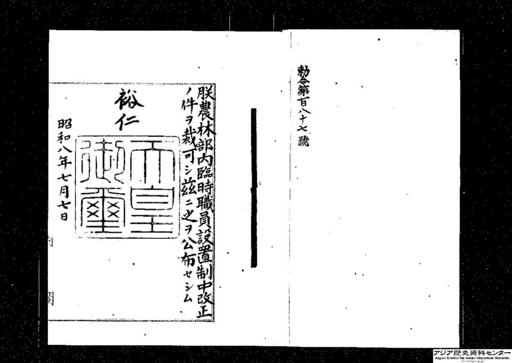 勅令第百八十七號
朕農林部内臨時職員設置制中改正
ノ件ヲ裁可シ茲ニ之ヲ公布セシム
裕仁
天皇
御璽
昭和八年七月七日
アジア歴史資料センター
Japan Center for Asian Historical Records